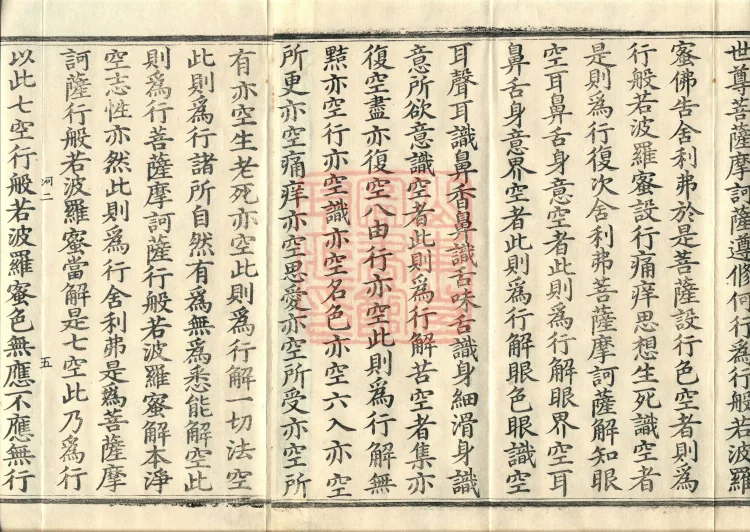 世尊菩薩摩訶薩遵修何行為行般若波羅
蜜佛告舍利弗於是菩薩設行色空者則為
行般若波羅蜜設行痛痒思想生死識空者
是則為行復次舍利弗菩薩摩訶薩解知眼
空耳鼻舌身意空者此則為行解眼界空耳
鼻舌身意界空者此則為行解眼色眼識空
耳聲耳識鼻香鼻識舌味舌識身細滑身識
意所欲意識空者此則為行解苦空者集亦
復空盡亦復空八由行亦空此則為行解無
黠亦空行亦空識亦空名色亦空六入亦空
所更亦空痛痒亦空思愛亦空所受亦空所
有亦空生老死亦空此則為行解一切法空
此則為行諸所自然有為無為悉能解空此
則為行菩薩摩訶薩行般若波羅蜜解本淨
空志性亦然此則為行舍利弗是為菩薩摩
訶薩行般若波羅蜜當解是七空此乃為行
河二 五
以此七空行般若波羅蜜色無應不應無行